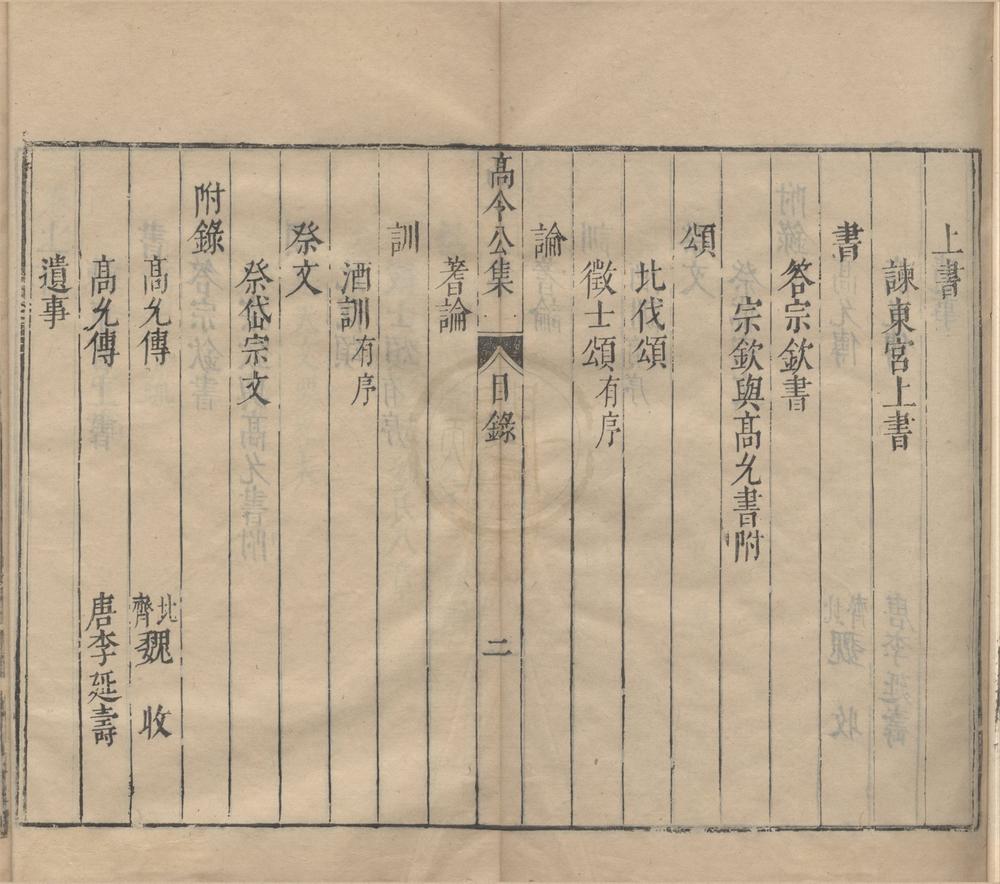 上書
諫東宮上書
書
答宗欽書
宗欽與高允書附
頌
北伐頌
徵士頌有序
論
高令公集 目錄 二
著論
訓
酒訓有序
祭文
祭岱宗文
附錄
高允傳 北齊魏 收
高允傳 唐李延壽
遺事